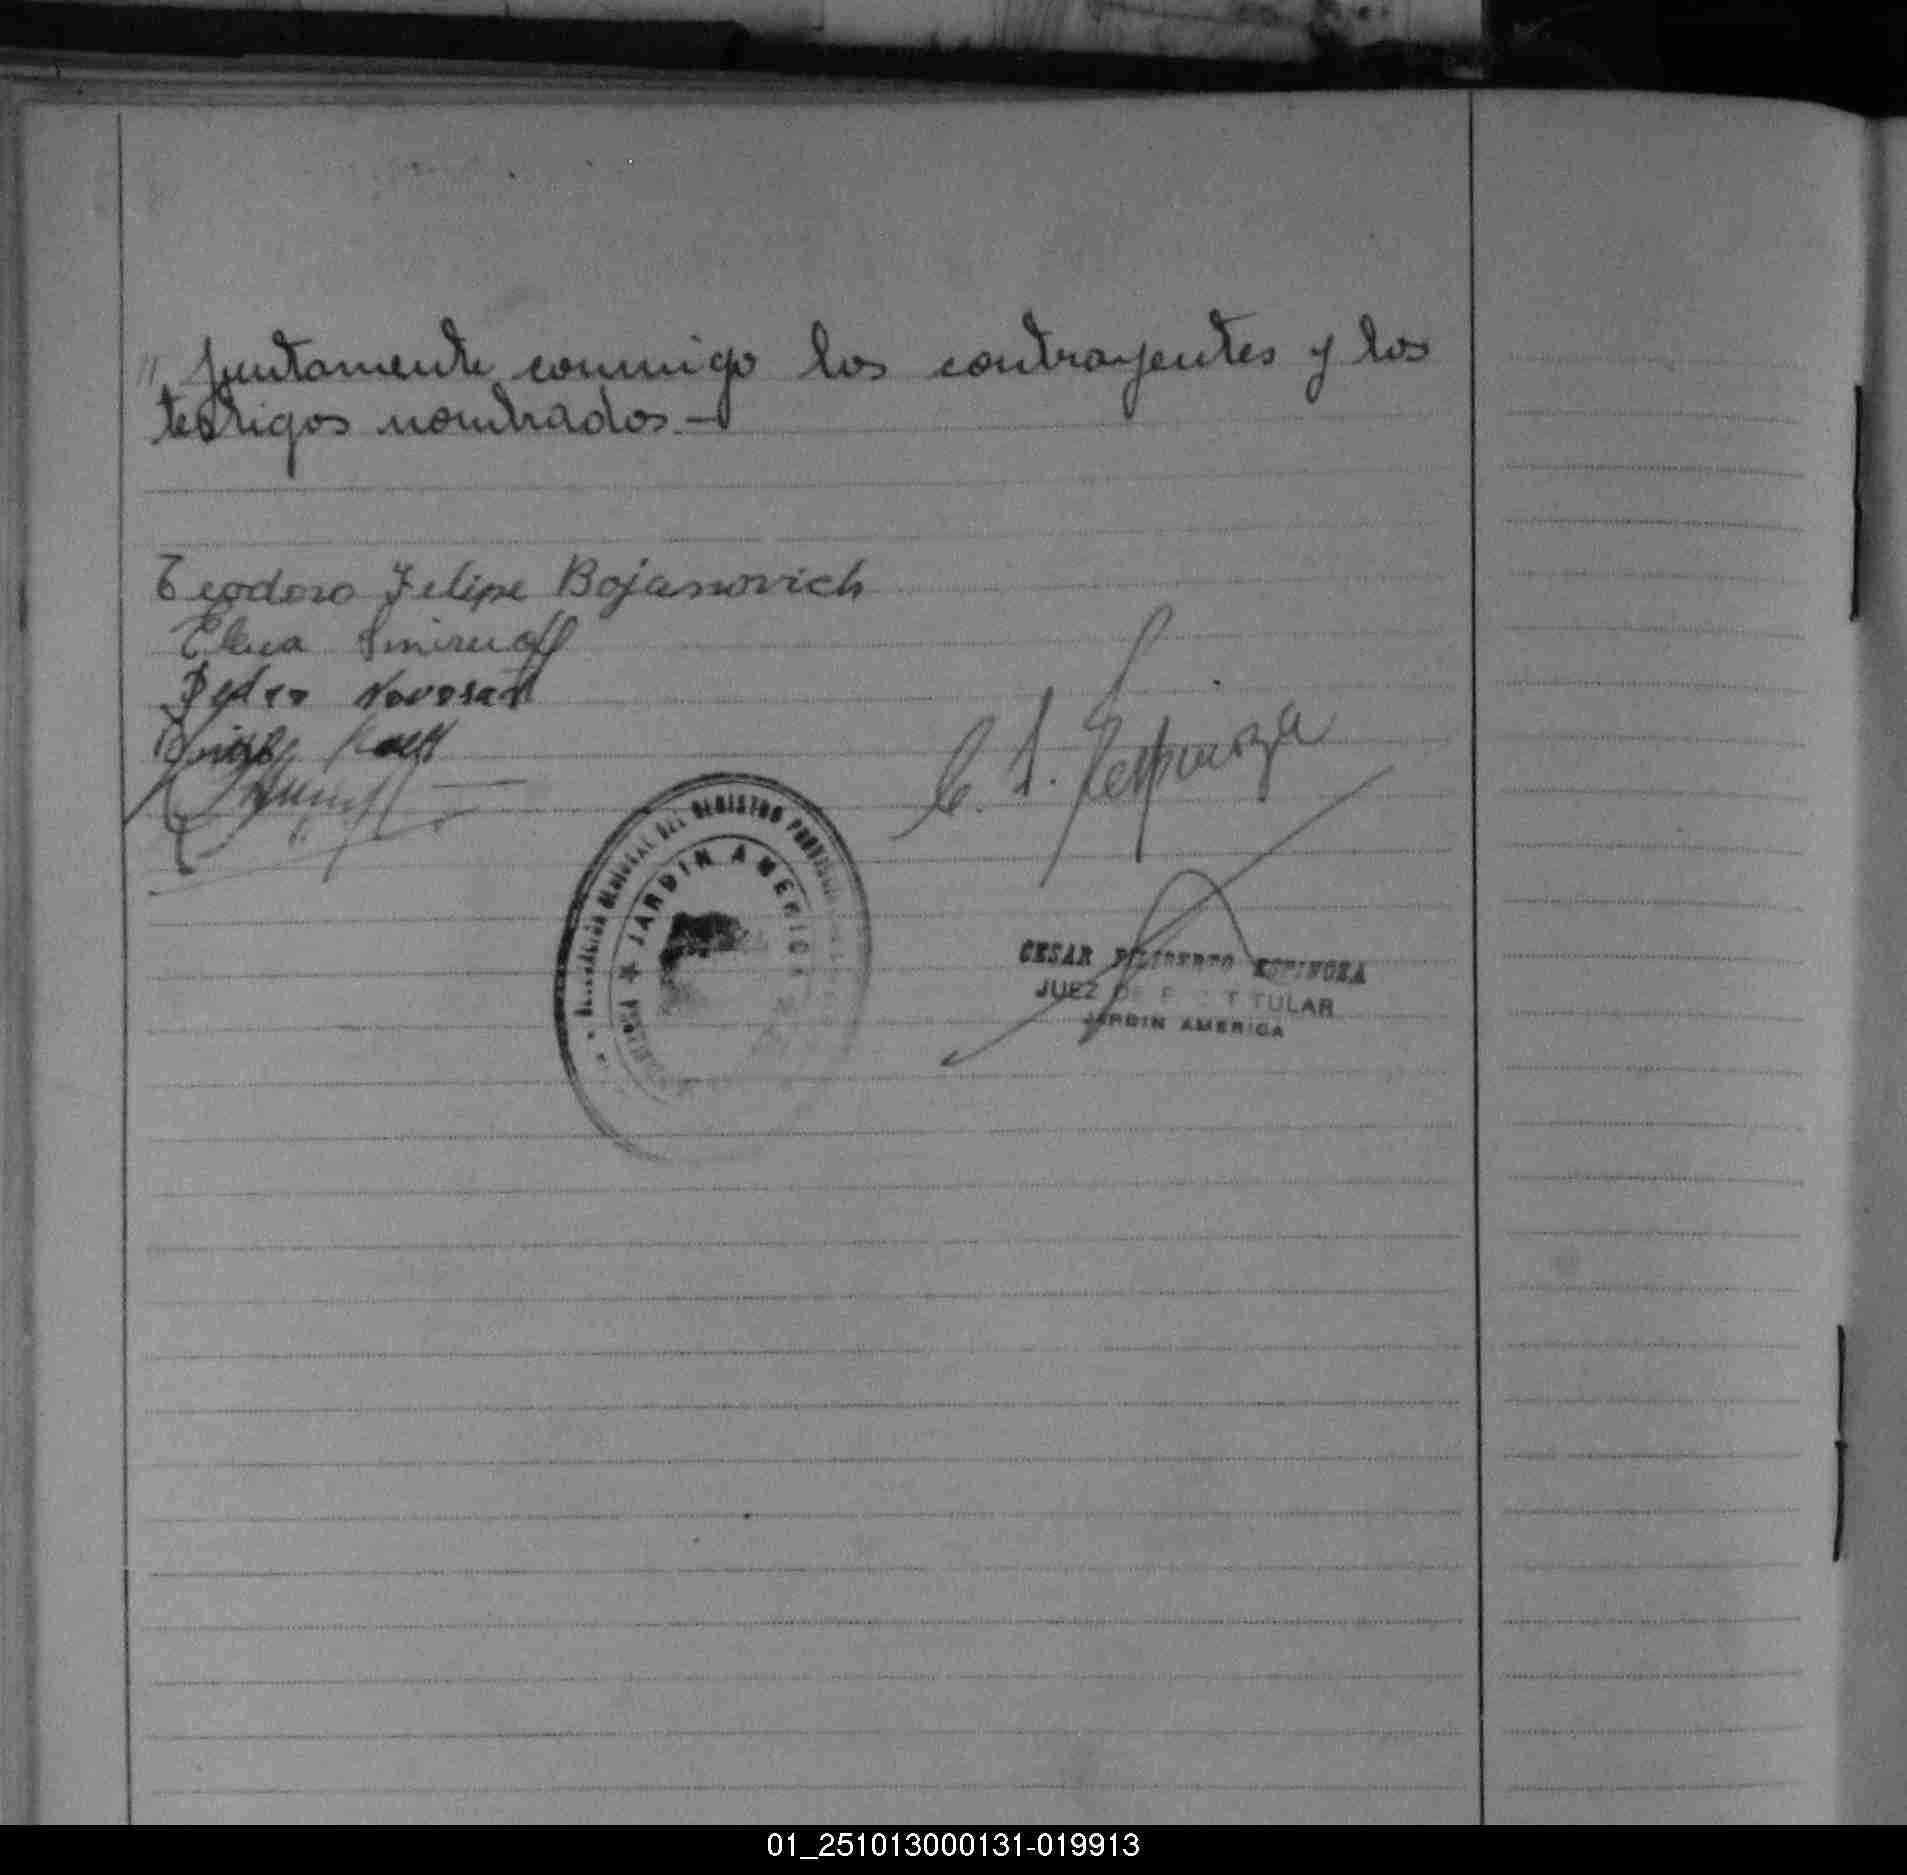 " Juntamente conmigo los contrayentes y los
testigos nombrados.-
Teodoro Felipe Bojanovich
Elena Smirnoff
Pedro Novosat
C. F. Espinoza
DEL REGISTRO
JARDIN AMERICA
CESAR FILIBERTO ESPINOZA
JUEZ DE TITULAR
JARDIN AMERICA
01_251013000131-019913